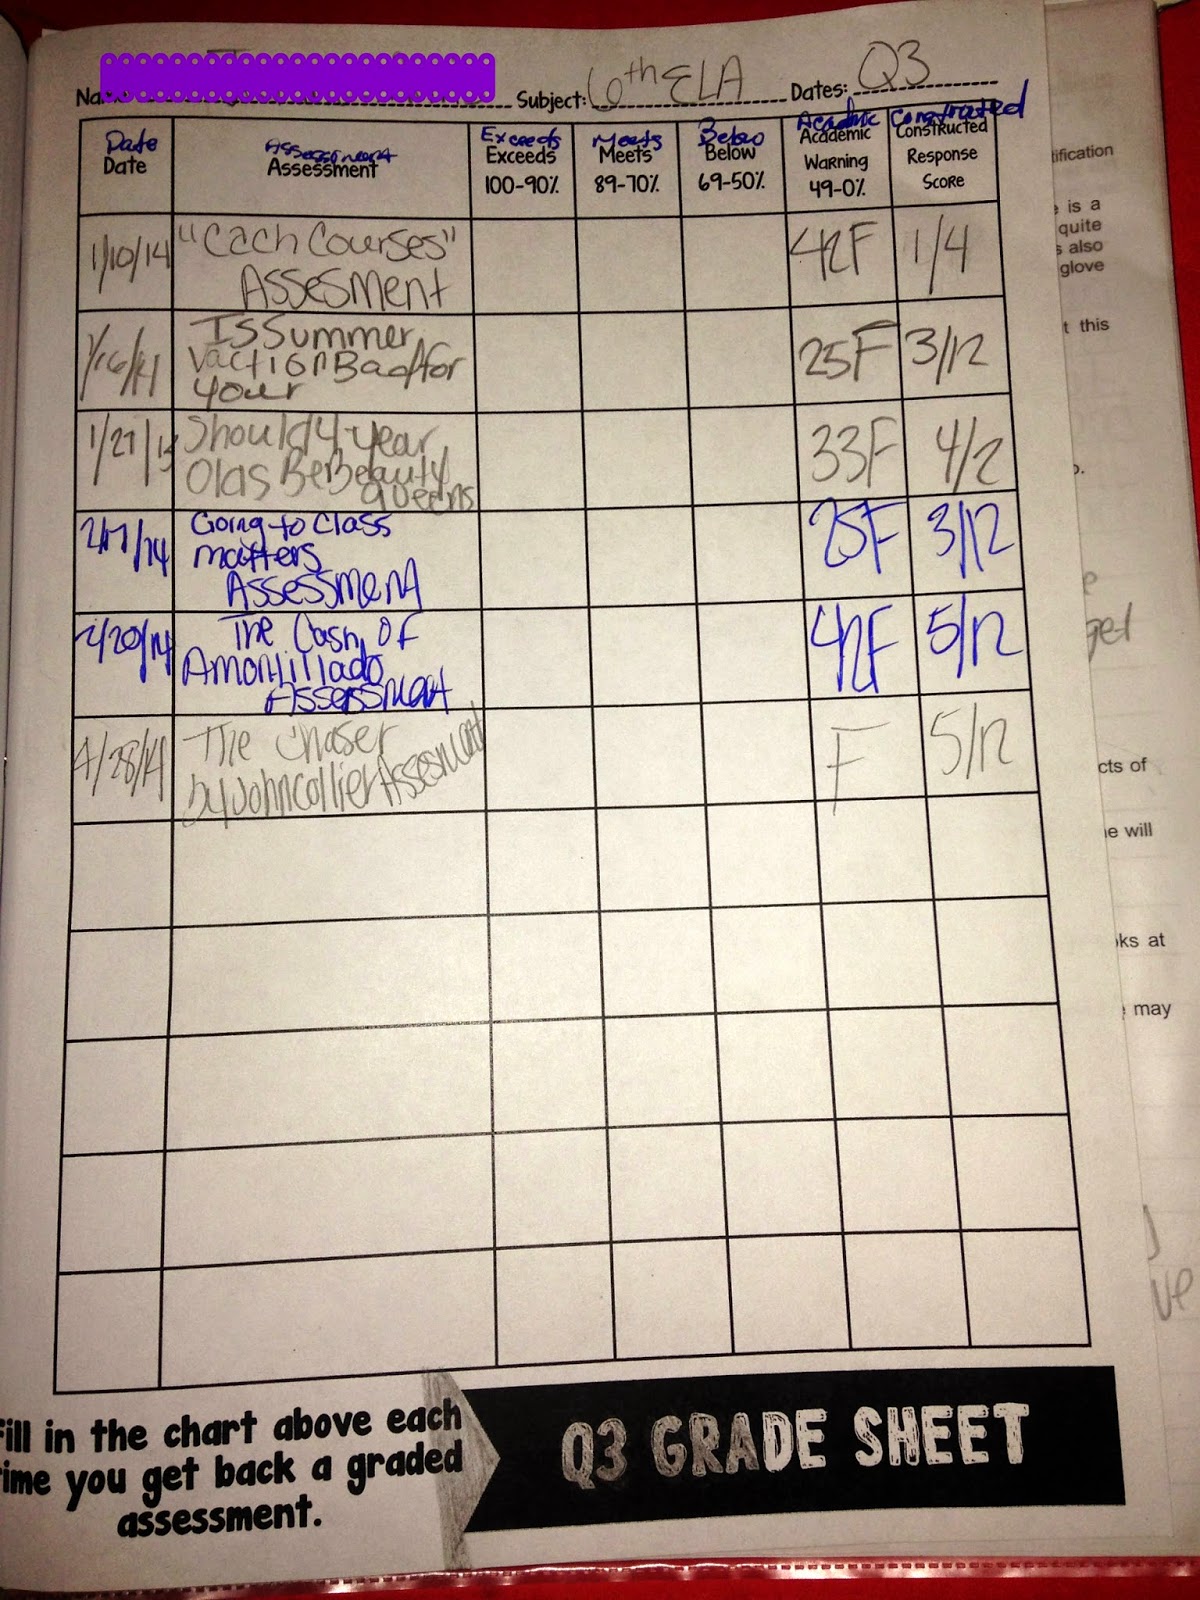 Subject: 6th ELA Dates: Q3
Date Assessment Exceeds Meets Below Academic Constructed
Date Assessment Exceeds Meets Below Academic Constructed
Warning Response
100-90% 89-70% 69-50% 49-0% Score
1/10/14 "Cach Courses" 42F 1/4
Assesment
1/16/14 Is Summer 25F 3/12
Vaction Bad for
your
Should 4-year 33F 4/2
Olds Be Beauty
Queens
Going to Class 25F 3/12
matters
Assessment
2/20/14 The Cash of 42F 5/12
Amontillado
Assessment
The Chaser F 5/12
4/28/14 by John collier Assesment
Fill in the chart above each
time you get back a graded
assessment.
Q3 GRADE SHEET
tification
is a
quite
also
glove
t this
cts of
e will
oks at
may